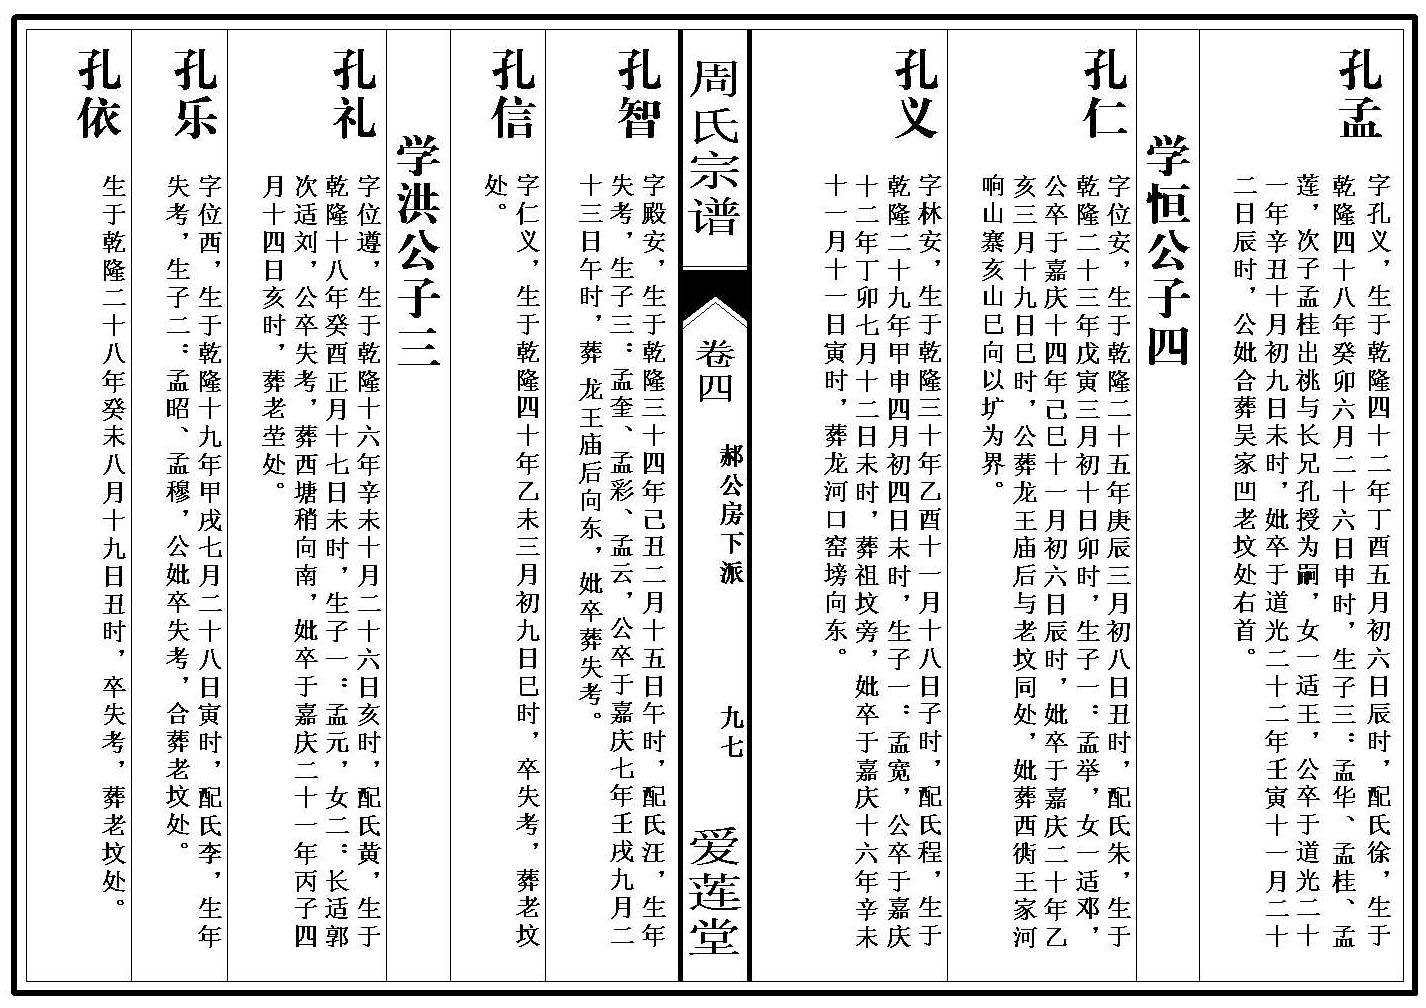 孔孟
字孔义，生于乾隆四十二年丁酉五月初六日辰时，配氏徐，生于
乾隆四十八年癸卯六月二十六日申时，生子三：孟华、孟桂、孟
莲，次子孟桂出祧与长兄孔授为嗣，女一适王，公卒于道光二十
一年辛丑十月初九日未时，妣卒于道光二十二年壬寅十一月二十
二日辰时，公妣合葬吴家凹老坟处右首。
学恒公子四
孔仁
字位安，生于乾隆二十五年庚辰三月初八日丑时，配氏朱，生于
乾隆二十三年戊寅三月初十日卯时，生子一：孟举，女一适邓，
公卒于嘉庆十四年己巳十一月初六日辰时，妣卒于嘉庆二十年乙
亥三月十九日巳时，公葬龙王庙后与老坟同处，妣葬西衖王家河
响山寨亥山巳向以圹为界。
孔义
字林安，生于乾隆三十年乙酉十一月十八日子时，配氏程，生于
乾隆二十九年甲申四月初四日未时，生子一：孟宽，公卒于嘉庆
十二年丁卯七月十二日未时，葬祖坟旁，妣卒于嘉庆十六年辛未
十一月十一日寅时，葬龙河口窑塝向东。
周氏宗谱
卷四
郝公房下派
九七
爱莲堂
孔智
字殿安，生于乾隆三十四年己丑二月十五日午时，配氏汪，生年
失考，生子三：孟奎、孟彩、孟云，公卒于嘉庆七年壬戌九月二
十三日午时，葬龙王庙后向东，妣卒葬失考。
孔信
字仁义，生于乾隆四十年乙未三月初九日巳时，卒失考，葬老坟
处。
学洪公子三
孔礼
字位遵，生于乾隆十六年辛未十月二十六日亥时，配氏黄，生于
乾隆十八年癸酉正月十七日未时，生子一：孟元，女二：长适郭
次适刘，公卒失考，葬西塘稍向南，妣卒于嘉庆二十一年丙子四
月十四日亥时，葬老茔处。
孔乐
字位西，生于乾隆十九年甲戌七月二十八日寅时，配氏李，生年
失考，生子二：孟昭、孟穆，公妣卒失考，合葬老坟处。
孔依
生于乾隆二十八年癸未八月十九日丑时，卒失考，葬老坟处。